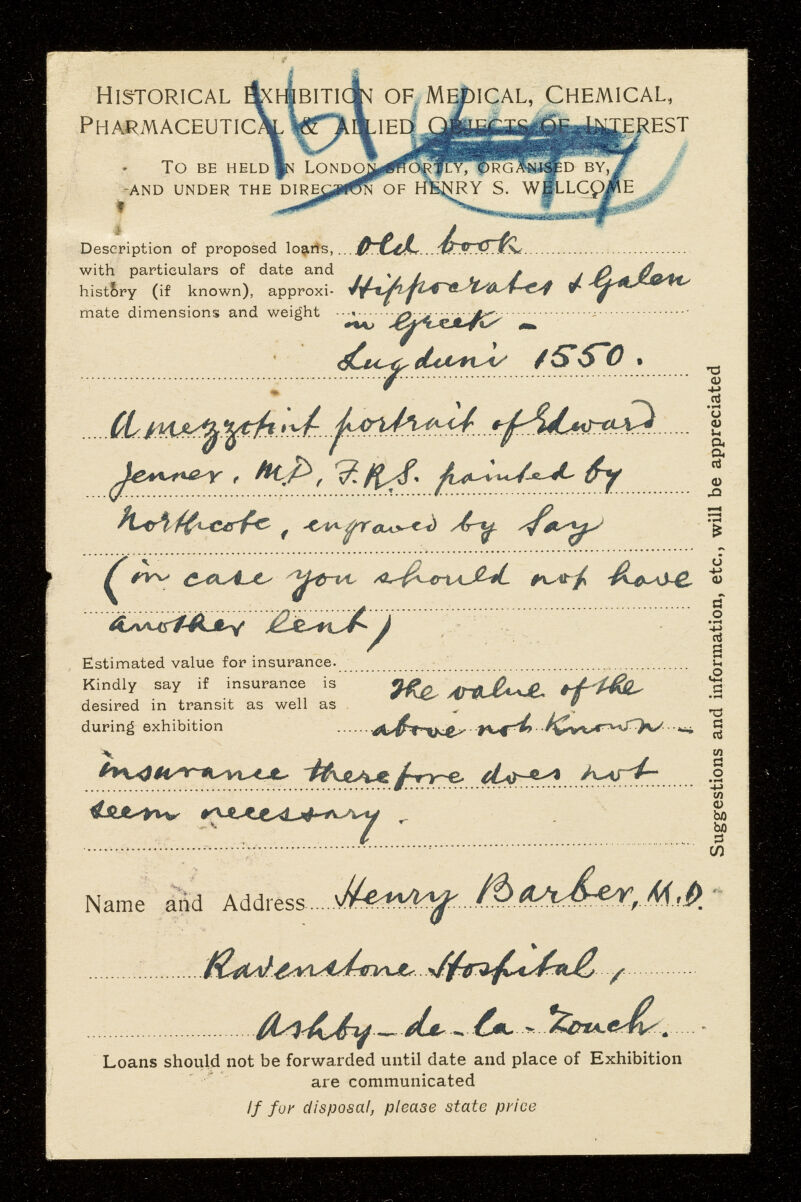 HISTORICAL EXHIBITION OF MEDICAL, CHEMICAL,
PHARMACEUTICAL & ALLIED OBJECTS OF INTEREST
161
TO BE HELD IN LONDON SHORTLY, ORGANISED BY,
AND UNDER THE DIRECTION OF HENRY S. WELLCOME
Description of proposed loans, old book
with particulars of date and
history (if known), approxi- Hippocrates & Galen
mate dimensions and weight in Greek -
Lugduni 1550.
A mezzotint portrait of Edward
Jenner, M.D, F.R.S. painted by
Northcote, engraved by Say
(in case you should not have
another lent)
Estimated value for insurance.
Kindly say if insurance is The value of the
desired in transit as well as
during exhibition above not known -
insurance therefore does not
seem necessary.
Suggestions and information, etc., will be appreciated
Name and Address Henry Barber, M.D.
Ravenstone Hospital,
Ashby-de-la-Zouch.
Loans should not be forwarded until date and place of Exhibition
are communicated
If for disposal, please state price